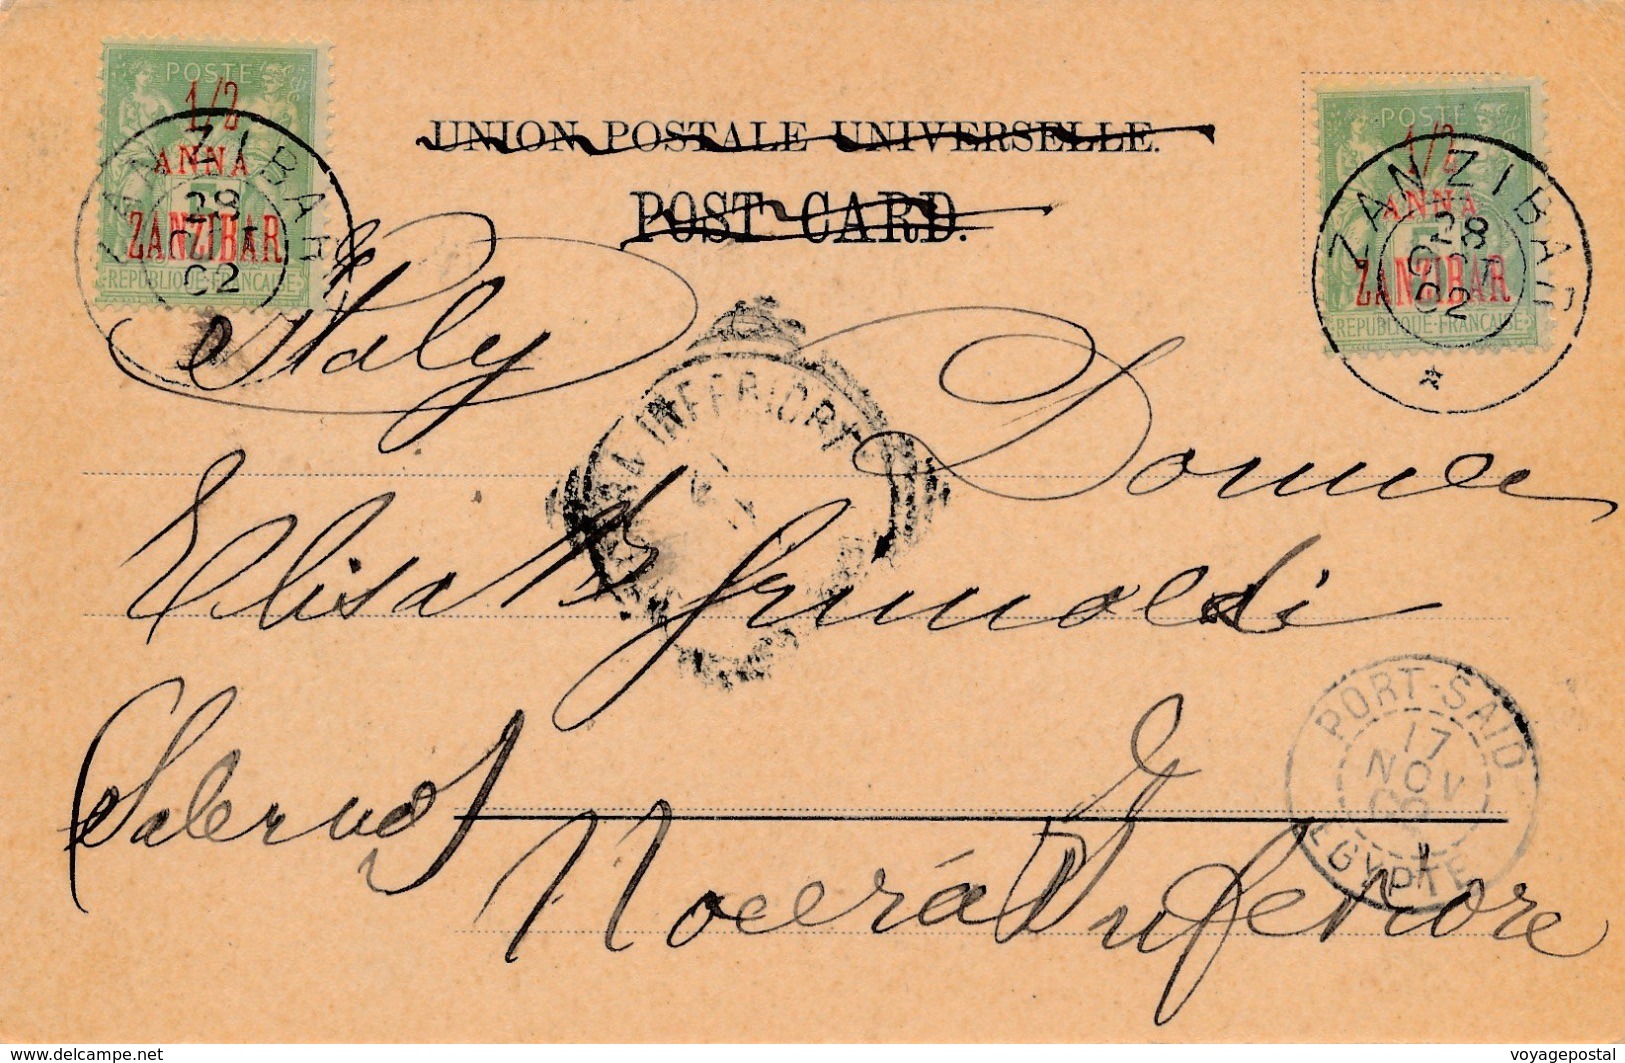 POSTE
1/2
ANNA
ZANZIBAR
REPUBLIQUE FRANCAISE
ZANZIBAR
28
OCT
02
UNION POSTALE UNIVERSELLE.
POST CARD.
POSTE
1/2
ANNA
ZANZIBAR
REPUBLIQUE FRANCAISE
ZANZIBAR
28
OCT
02
Italy
INFERIORE
Donna
Elisa Grimaldi
PORT-SAID
17
NOV
EGYPTE
Salerno
Nocera Inferiore
www.delcampe.net
voyagepostal